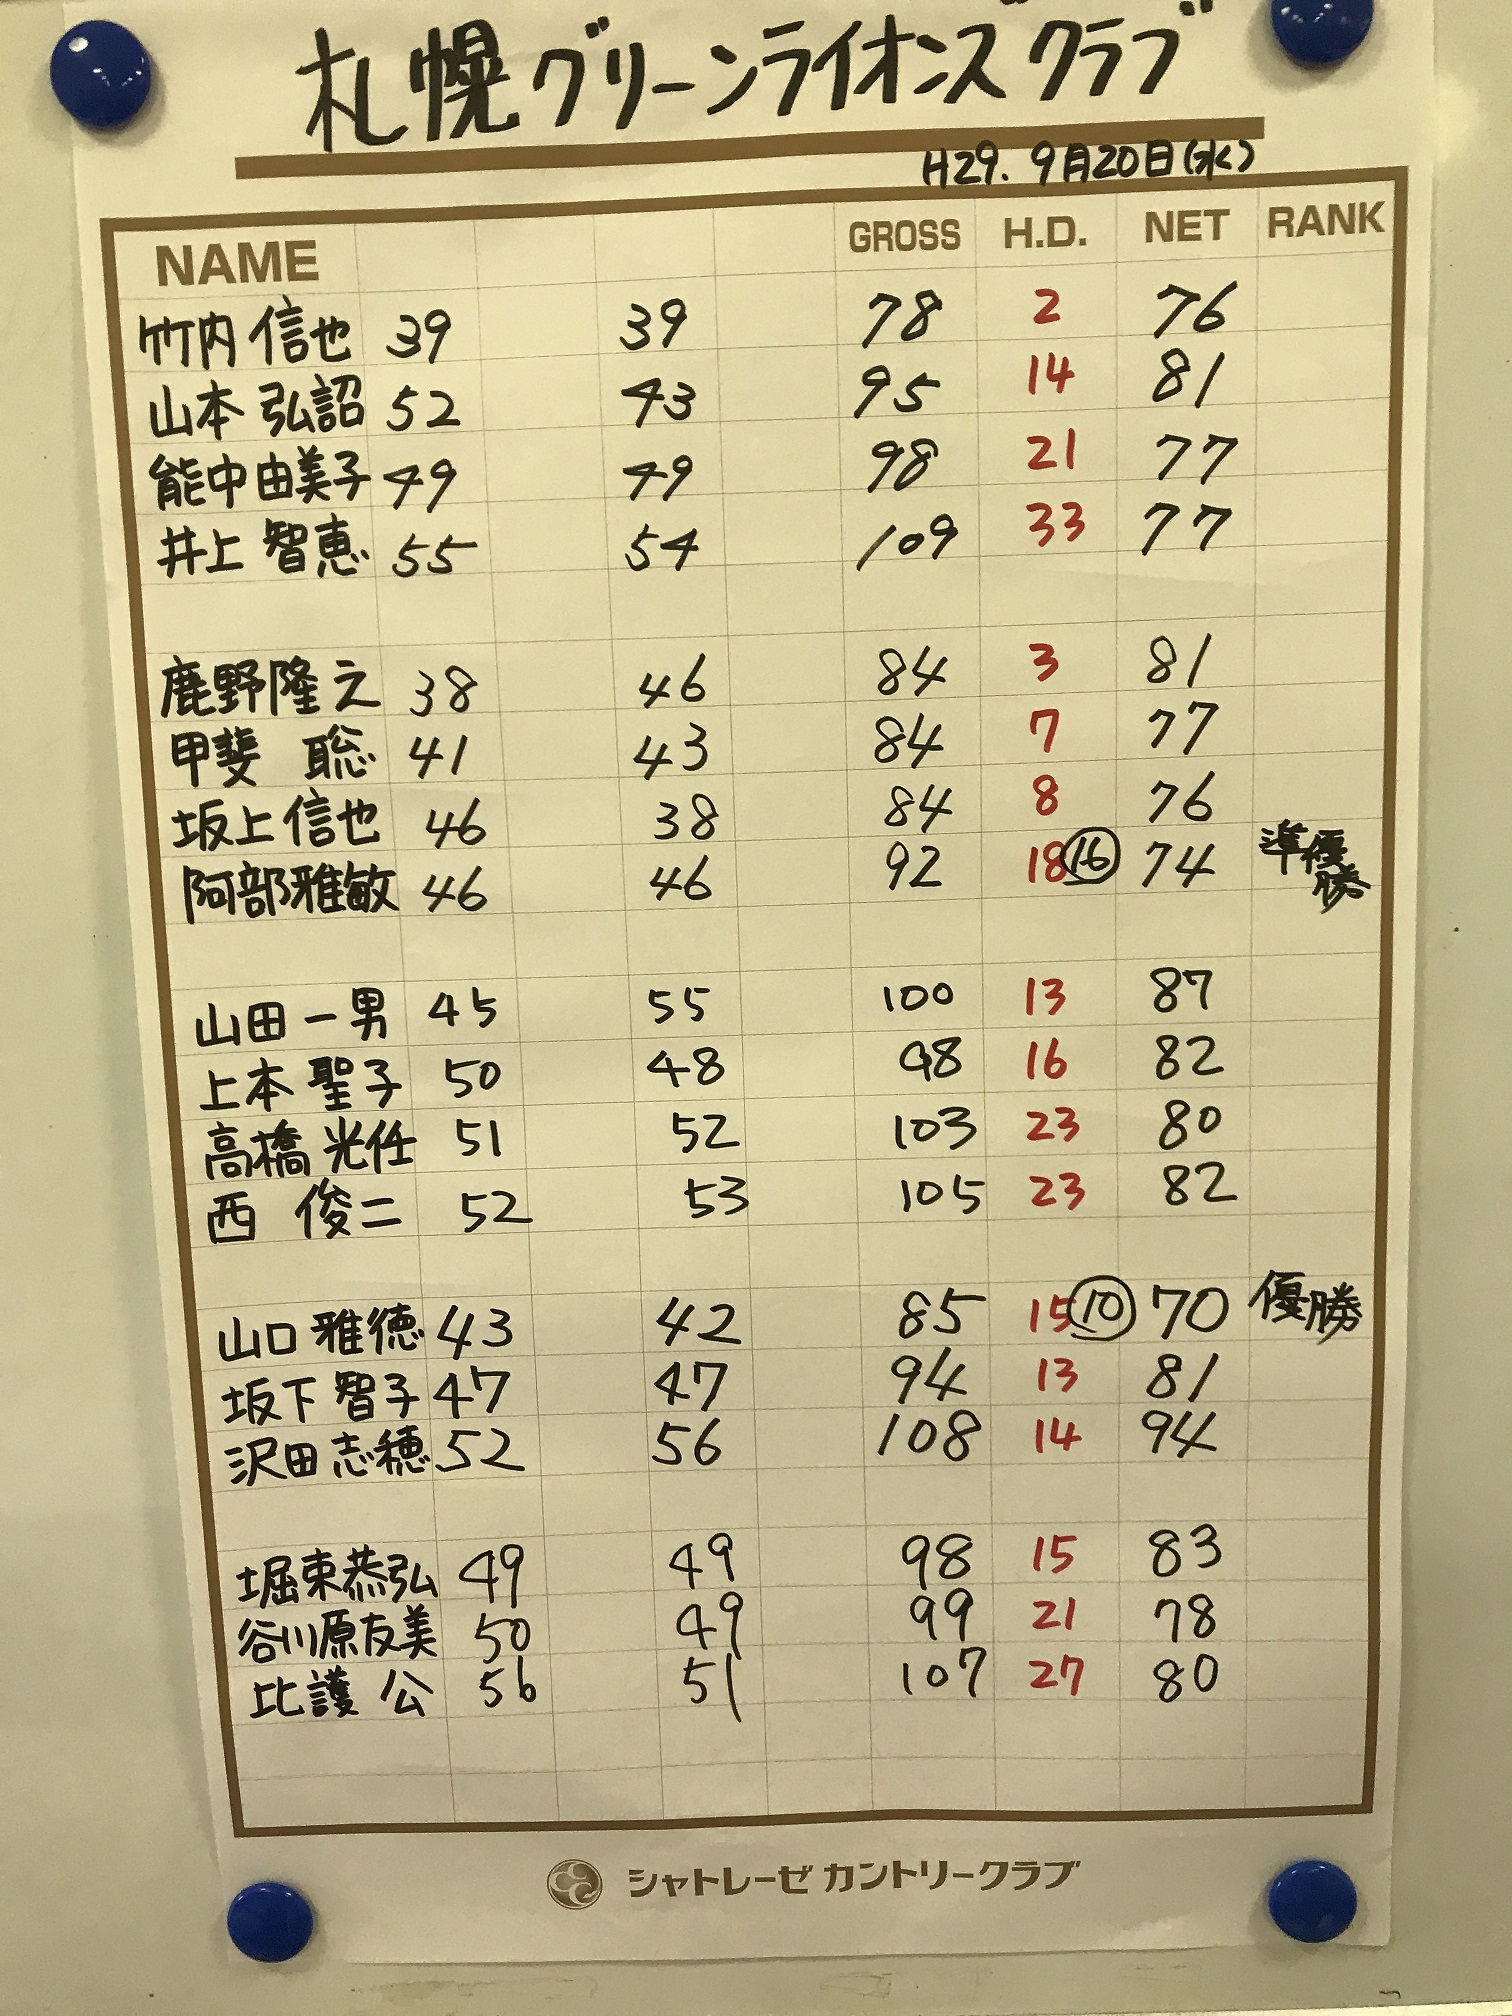 札幌グリーンライオンズクラブ
H29. 9月20日(水)
NAME GROSS H.D. NET RANK
竹内 信也 39 39 78 2 76
山本 弘詔 52 43 95 14 81
能中由美子 49 49 98 21 77
井上 智恵 55 54 109 33 77
鹿野隆之 38 46 84 3 81
甲斐 聡 41 43 84 7 77
坂上信也 46 38 84 8 76
阿部雅敏 46 46 92 18 16 74 準優勝
山田一男 45 55 100 13 87
上本聖子 50 48 98 16 82
高橋光任 51 52 103 23 80
西 俊二 52 53 105 23 82
山口雅徳 43 42 85 15 10 70 優勝
坂下智子 47 47 94 13 81
沢田志穂 52 56 108 14 94
堀東恭弘 49 49 98 15 83
谷川原友美 50 49 99 21 78
比護 公 56 51 107 27 80
シャトレーゼ カントリークラブ